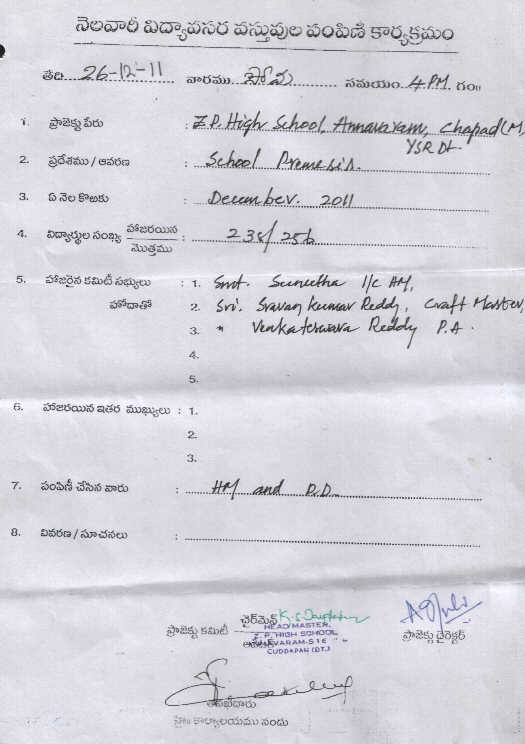 నెలవారీ విద్యావసర వస్తువుల పంపిణి కార్యక్రమం
తేది 26-12-11 వారము సోమ సమయం 4 PM. గం॥
1. ప్రాజెక్టు పేరు : Z.P. High School, Annavaram, Chapad (M)
YSR Dt.
2. ప్రదేశము / ఆవరణ : School Premesis.
3. ఏ నెల కొఱకు : December. 2011
4. విద్యార్థుల సంఖ్య హాజరయిన : 238/256
మొత్తము
5. హాజరైన కమిటీ సభ్యులు : 1. Smt. Sunetha I/c HM,
హోదాతో 2. Sri. Sravan Kumar Reddy, Craft Master,
3. " Venkateswara Reddy P.A.
4.
5.
6. హాజరయిన ఇతర ముఖ్యులు : 1.
2.
3.
7. పంపిణీ చేసిన వారు : HM and P.D.
8. వివరణ / సూచనలు :
ప్రాజెక్టు కమిటీ చైర్‌మెన్
HEAD MASTER,
Z. P. HIGH SCHOOL
CUDDAPAH (DT.)
ప్రాజెక్టు డైరెక్టర్
కార్యాలయము నందు